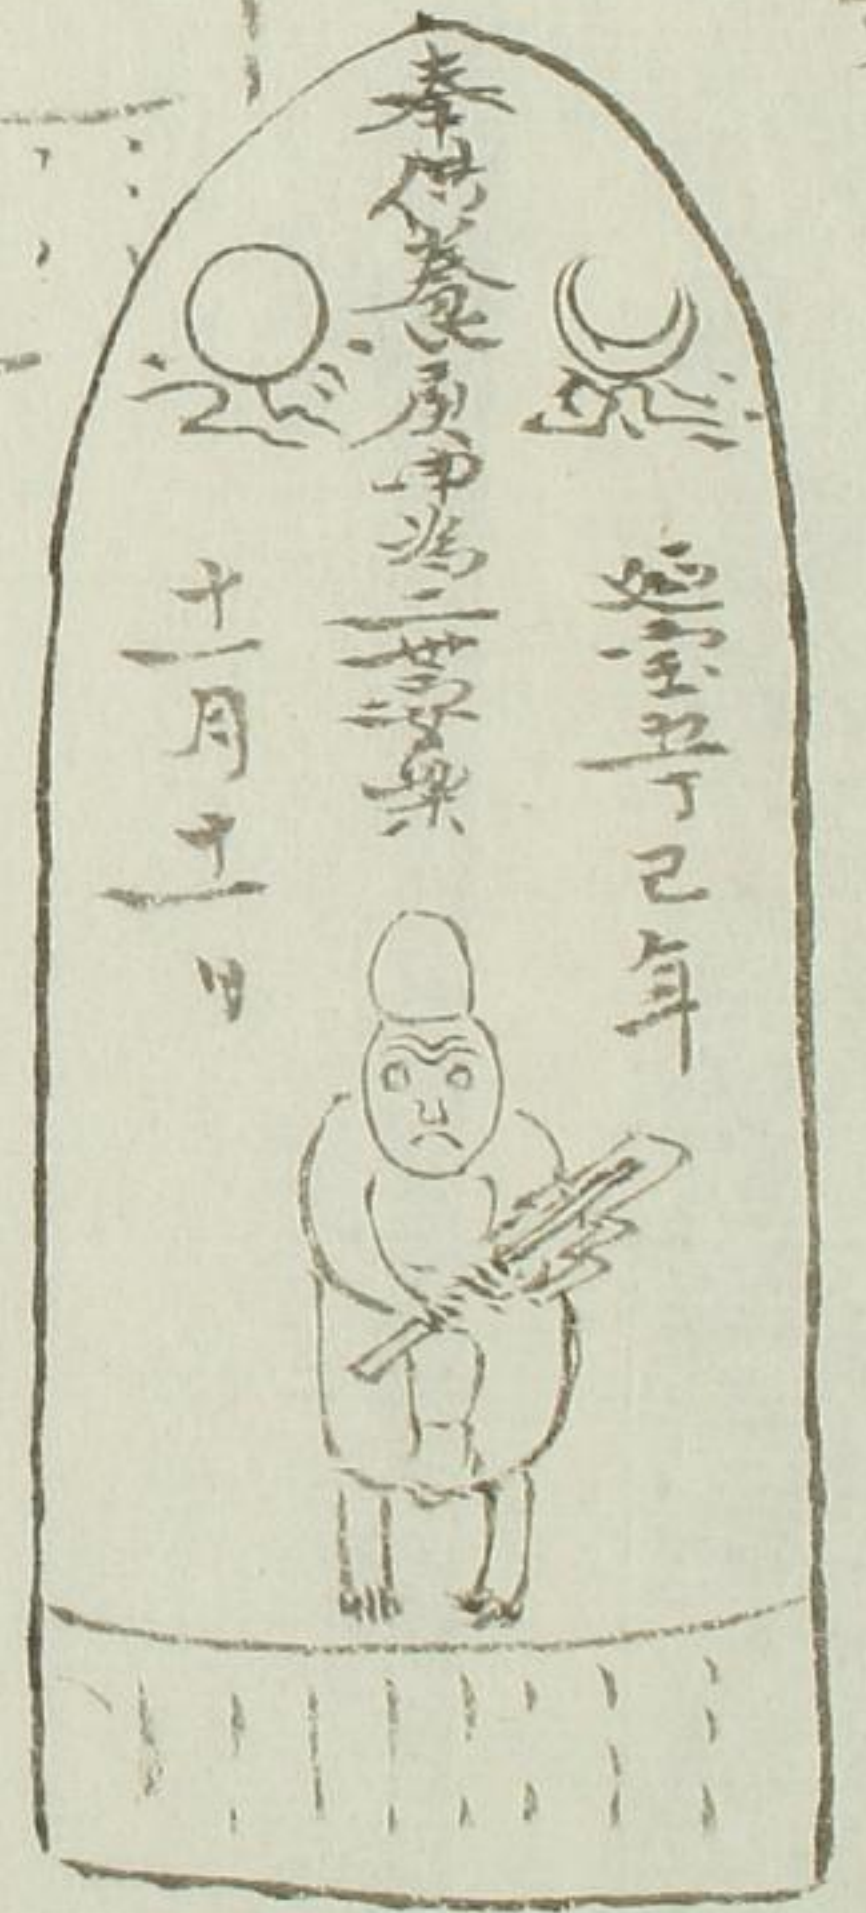 延宝五丁巳年
奉供養庚申為二世安楽
十一月十一日